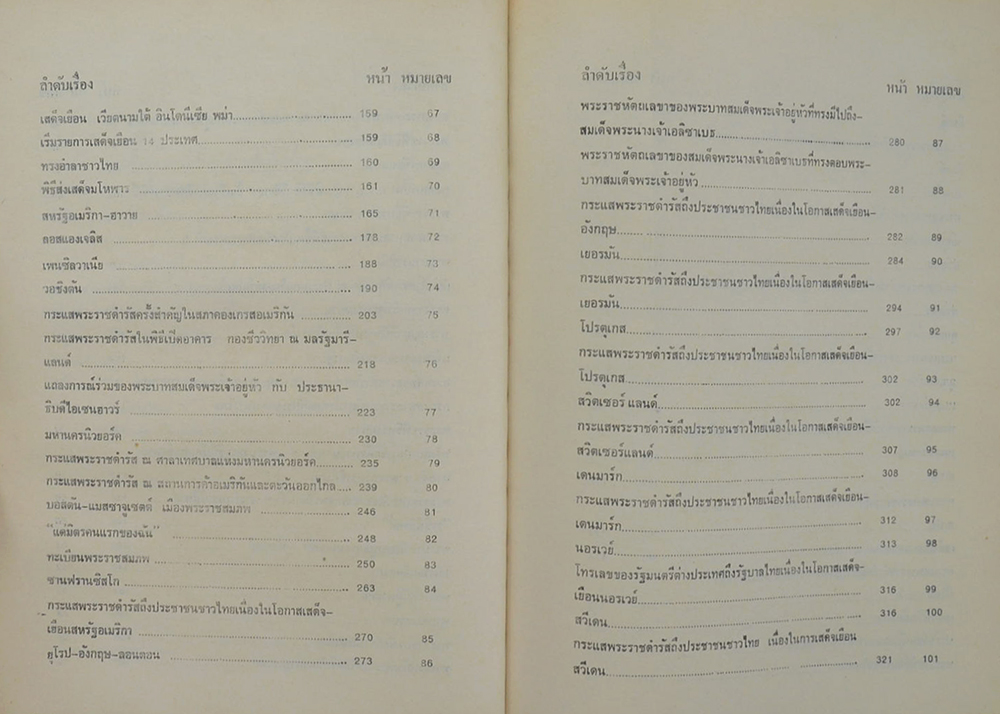 ลำดับเรื่อง หน้า หมายเลข
เสด็จเยือน เวียดนามใต้ อินโดนีเซีย พม่า 159 67
เริ่มรายการเสด็จเยือน 14 ประเทศ 159 68
ทรงอำลาชาวไทย 160 69
พิธีส่งเสด็จมโหฬาร 161 70
สหรัฐอเมริกา-ฮาวาย 165 71
ลอสแองเจลิส 178 72
เพนซิลวาเนีย 188 73
วอชิงตัน 190 74
กระแสพระราชดำรัสครั้งสำคัญในสภาคองเกรสอเมริกัน 203 75
กระแสพระราชดำรัสในพิธีเปิดอาคาร กองชีววิทยา ณ มลรัฐมารี-
แลนด์ 218 76
แถลงการณ์ร่วมของพระบาทสมเด็จพระเจ้าอยู่หัว กับ ประธานา-
ธิบดีไอเซนฮาวร์ 223 77
มหานครนิวยอร์ค 230 78
กระแสพระราชดำรัส ณ ศาลาเทศบาลแห่งมหานครนิวยอร์ค 235 79
กระแสพระราชดำรัส ณ สถานการค้าอเมริกันและตะวันออกไกล 239 80
บอสตัน-แมสซาจูเซตต์ เมืองพระราชสมภพ 246 81
"แด่มิตรคนแรกของฉัน" 248 82
ทะเบียนพระราชสมภพ 250 83
ซานฟรานซิสโก 263 84
กระแสพระราชดำรัสถึงประชาชนชาวไทยเนื่องในโอกาสเสด็จ-
เยือนสหรัฐอเมริกา 270 85
ยุโรป-อังกฤษ-ลอนดอน 273 86
ลำดับเรื่อง
หน้า หมายเลข
พระราชหัตถเลขาของพระบาทสมเด็จพระเจ้าอยู่หัวที่ทรงมีไปถึง-
สมเด็จพระนางเจ้าเอลิซาเบธ 280 87
พระราชหัตถเลขาของสมเด็จพระนางเจ้าเอลิซาเบธที่ทรงตอบพระ-
บาทสมเด็จพระเจ้าอยู่หัว 281 88
กระแสพระราชดำรัสถึงประชาชนชาวไทยเนื่องในโอกาสเสด็จเยือน-
อังกฤษ 282 89
เยอรมัน 284 90
กระแสพระราชดำรัสถึงประชาชนชาวไทยเนื่องในโอกาสเสด็จเยือน-
เยอรมัน 294 91
โปรตุเกส 297 92
กระแสพระราชดำรัสถึงประชาชนชาวไทยเนื่องในโอกาสเสด็จเยือน-
โปรตุเกส 302 93
สวิตเซอร์แลนด์ 302 94
กระแสพระราชดำรัสถึงประชาชนชาวไทยเนื่องในโอกาสเสด็จเยือน-
สวิตเซอร์แลนด์ 307 95
เดนมาร์ก 308 96
กระแสพระราชดำรัสถึงประชาชนชาวไทยเนื่องในโอกาสเสด็จเยือน-
เดนมาร์ก 312 97
นอรเวย์ 313 98
โทรเลขของรัฐมนตรีต่างประเทศถึงรัฐบาลไทยเนื่องในโอกาสเสด็จ-
เยือนนอรเวย์ 316 99
สวีเดน 316 100
กระแสพระราชดำรัสถึงประชาชนชาวไทย เนื่องในการเสด็จเยือน
สวีเดน 321 101